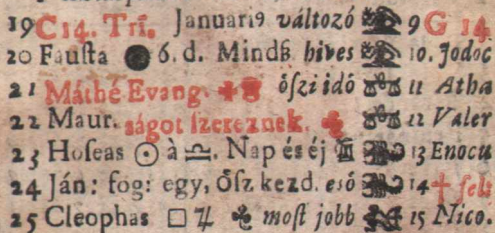 19 C 14. Trī. Januariꝰ változó 9 G 14
20 Fauſta ● 6. d. Mindẞ híves 10. Jodoc
21 Máthé Evang. őſzi idő 11 Atha
22 Maur. ságot ſzereznek. 12 Valer
23 Hoſeas ☉ à ♎. Nap és éj 13 Enocu
24 Ján: fog: egy, Őſz kezd. eső 14 † felt
25 Cleophas □ ♃ moſt jobb 15 Nico.